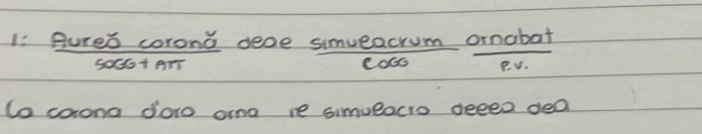 1: Aureă coronă deae simulacrum ornabat
SOGG + ATT COGG P.V.
La corona d'oro orna le simulacro della dea